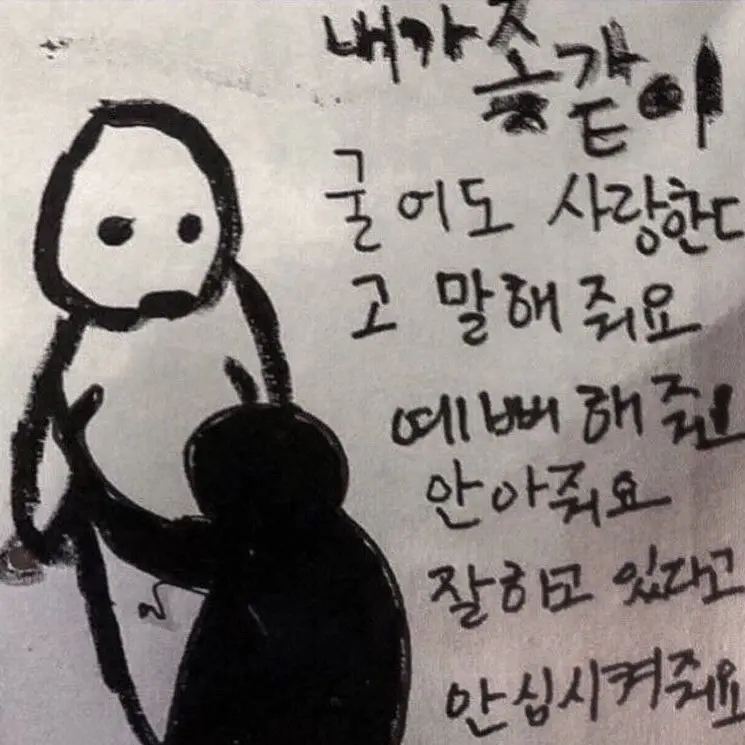 내가 좆같이
굴어도 사랑한다
고 말해줘요
예뻐해줘요
안아줘요
잘하고 있다고
안심시켜줘요